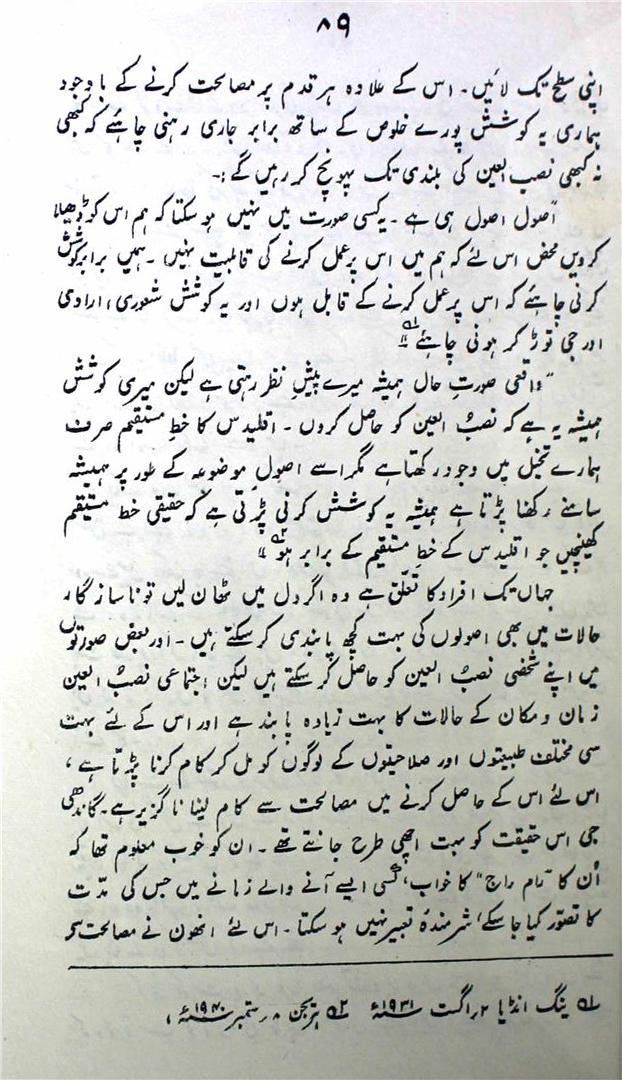 ۸۹
اپنی سطح تک لائیں۔ اس کے علاوہ ہر قدم پر مصالحت کرنے کے باوجود
ہماری یہ کوشش پورے خلوص کے ساتھ برابر جاری رہنی چاہئے کہ کبھی
نہ کبھی نصب العین کی بلندی تک پہونچ کر رہیں گے:۔
اُصول اصول ہی ہے۔ یہ کسی صورت میں نہیں ہو سکتا کہ ہم اس کو ڈھیلا
کر دیں محض اس لئے کہ ہم میں اس پر عمل کرنے کی قابلیت نہیں۔ ہمیں برابر کوشش
کرنی چاہئے کہ اس پر عمل کرنے کے قابل ہوں اور یہ کوشش شعوری، ارادی
اور جی توڑ کر ہونی چاہئے"۱؎
"واقعی صورتِ حال ہمیشہ میرے پیشِ نظر رہتی ہے لیکن میری کوشش
ہمیشہ یہ ہے کہ نصبُ العین کو حاصل کروں۔ اقلیدس کا خطِ مستقیم صرف
ہمارے تخیل میں وجود رکھتا ہے مگر اسے اصولِ موضوعہ کے طور پر ہمیشہ
سامنے رکھنا پڑتا ہے ہمیشہ یہ کوشش کرنی پڑتی ہے کہ حقیقی خط مستقیم
کھینچیں جو اقلیدس کے خطِ مستقیم کے برابر ہو"۲؎
جہاں تک افراد کا تعلق ہے وہ اگر دل میں ٹھان لیں تو ناسازگار
حالات میں بھی اصولوں کی بہت کچھ پابندی کر سکتے ہیں۔ اور بعض صورتوں
میں اپنے شخصی نصبُ العین کو حاصل کر سکتے ہیں لیکن اجتماعی نصبُ العین
زمان و مکان کے حالات کا بہت زیادہ پابند ہے اور اس کے لئے بہت
سی مختلف طبیعتوں اور صلاحیتوں کے لوگوں کو مل کر کام کرنا پڑتا ہے،
اس لئے اس کے حاصل کرنے میں مصالحت سے کام لینا ناگزیر ہے۔ گاندھی
جی اس حقیقت کو بہت اچھی طرح جانتے تھے۔ ان کو خوب معلوم تھا کہ
اُن کا "رام راج" کا خواب، کسی ایسے آنے والے زمانے میں جس کی مدّت
کا تصوّر کیا جا سکے، شرمندۂ تعبیر نہیں ہو سکتا۔ اس لئے انھوں نے مصالحت سے
۱؎ ینگ انڈیا ۲؍ اگست ۱۹۳۱ء ۲؎ ہریجن ۸؍ ستمبر ۱۹۴۰ء،